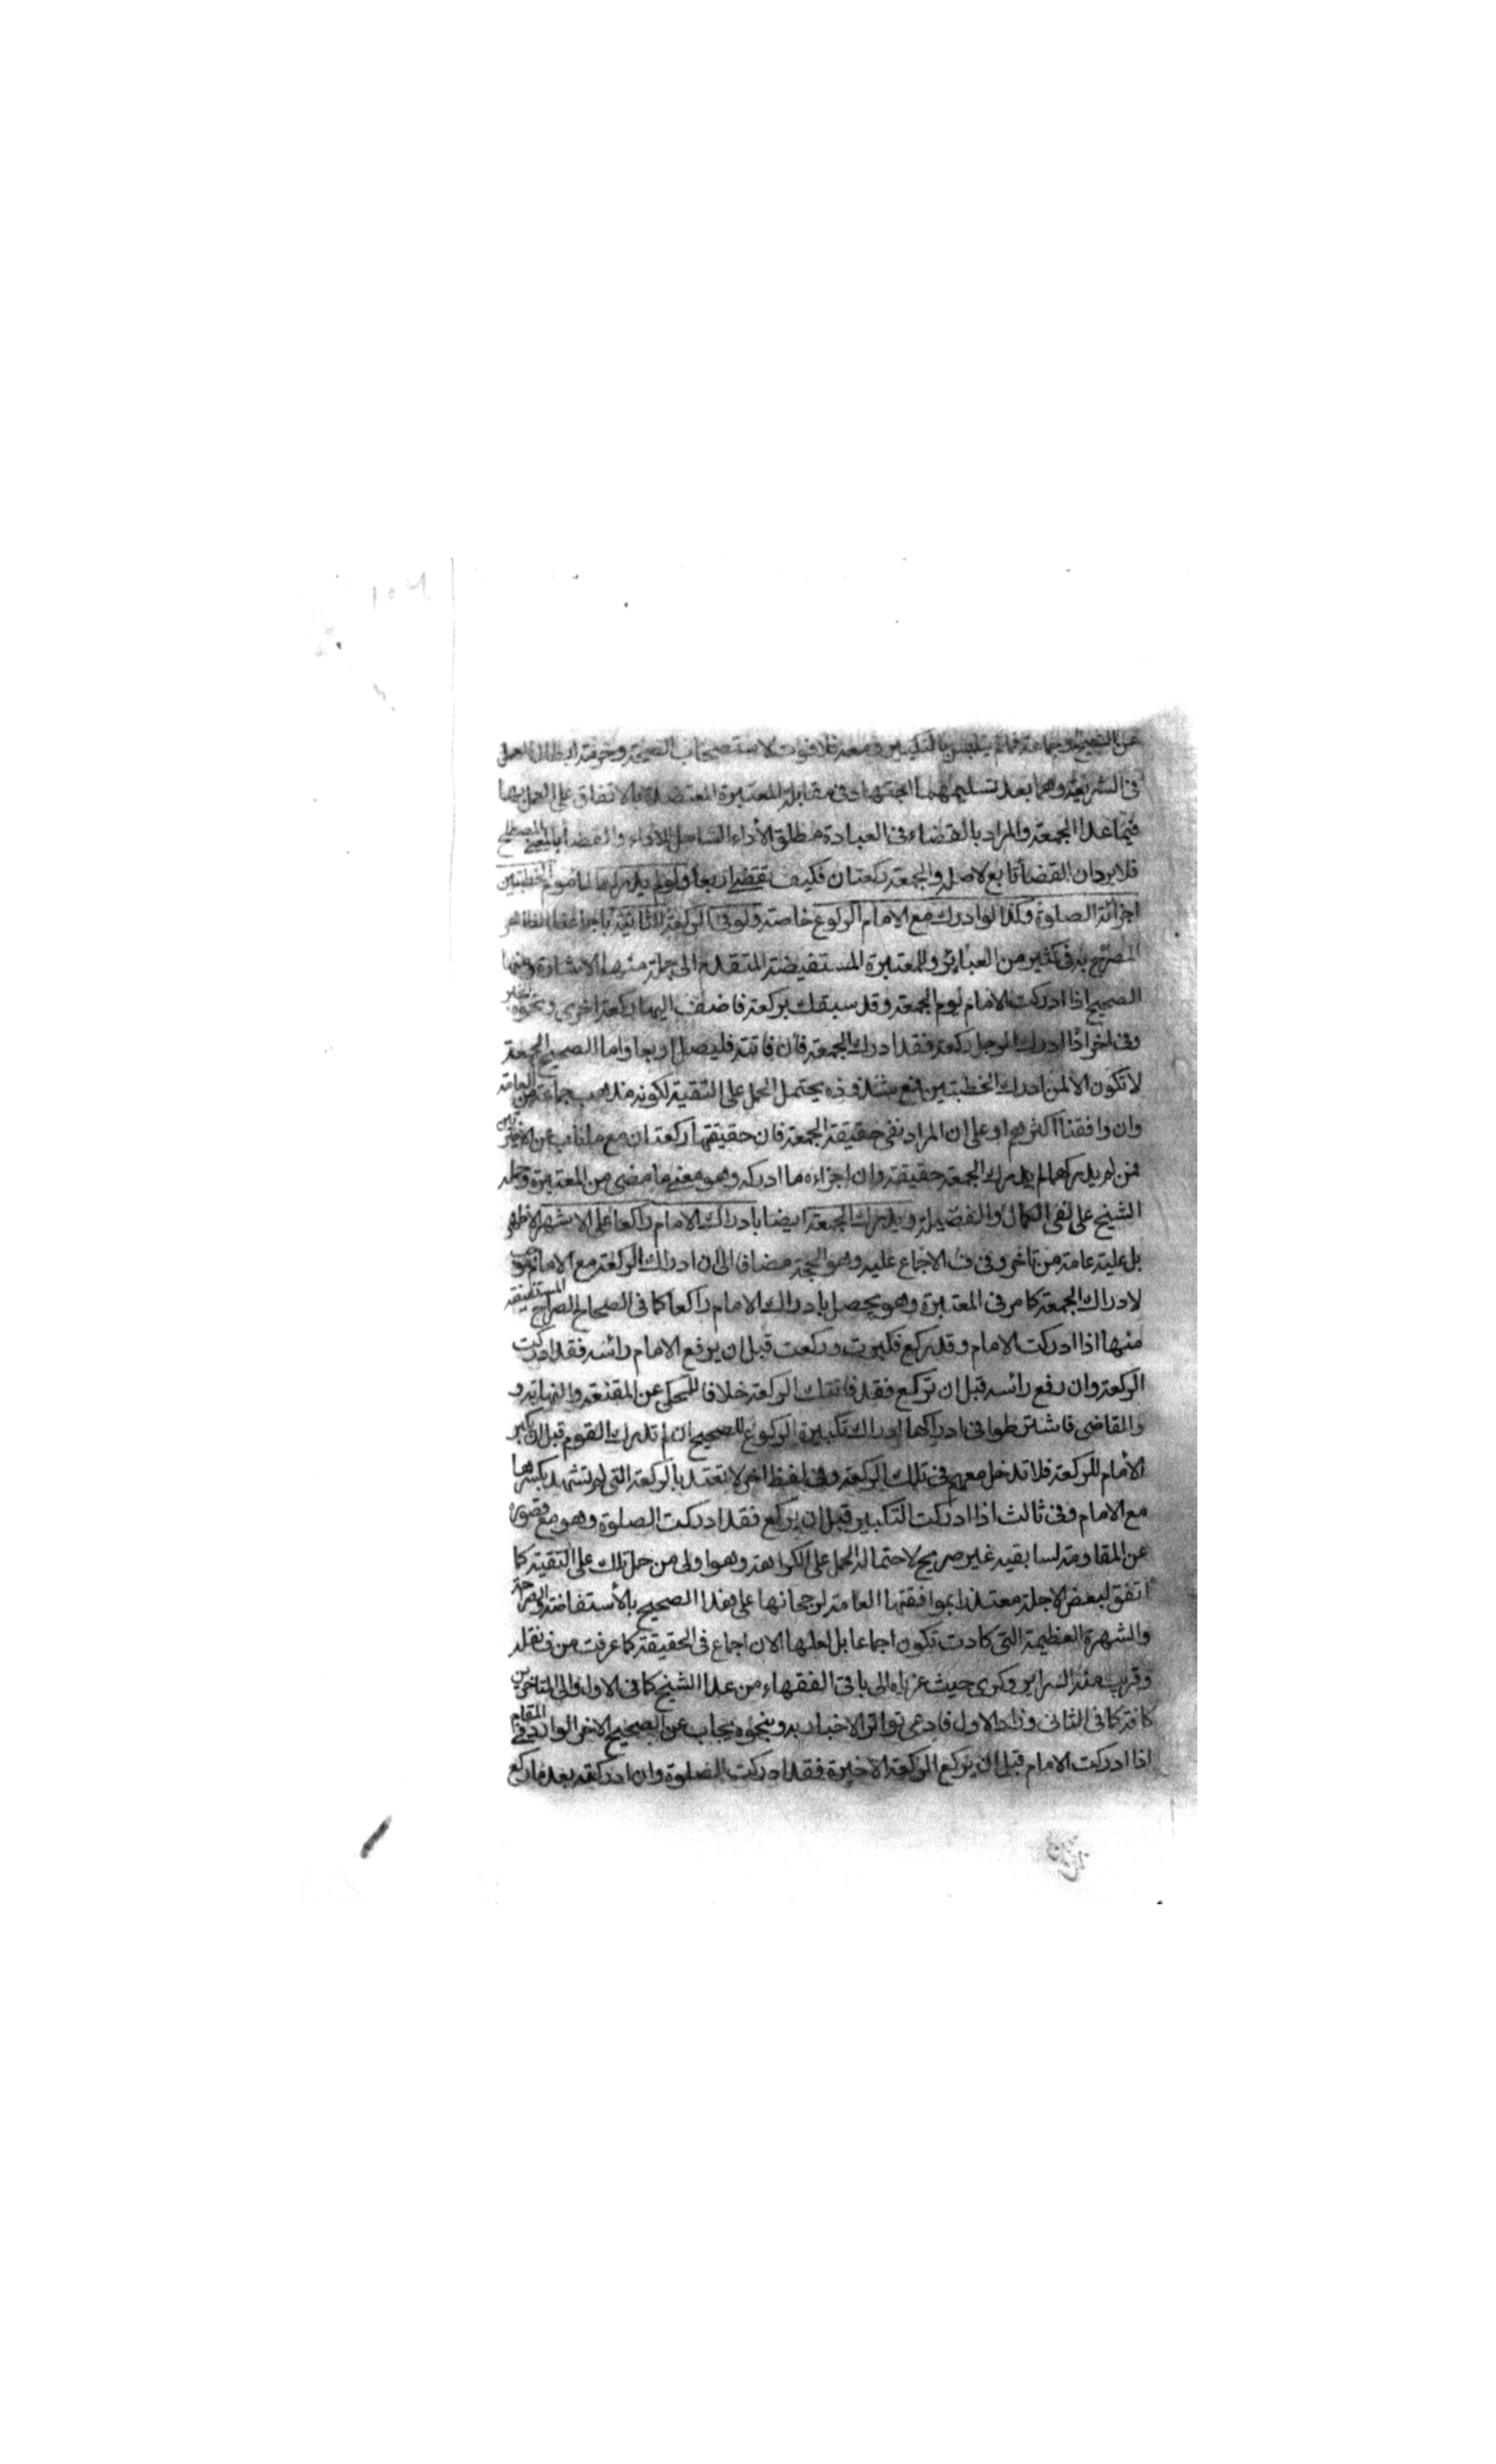 عن الشيخ وجماعة فما لم يتلبس بالتكبير ومعه فلا فوت لاستصحاب الصحة وحرمة ابطال العمل
فى الشريعة وهما بعد تسليمهما اجتهاد فى مقابلة المعتبرة المعتضدة بالاتفاق على العمل بها
فيما عدا الجمعة والمراد بالقضاء فى العبادة مطلق الأداء الشامل للاداء والقضأ بالمعنى المصطلح
فلا يرد ان القضأ تابع لاصله والجمعة ركعتان فكيف تقضى اربعا ولو لم يدرك المأموم الخطبتين
اجزائة الصلوة وكذا لو ادرك مع الامام الركوع خاصة ولو فى الركعة الثانية باجماعنا الظاهر
المصرح به فى كثير من العبائر وللمعتبرة المستفيضة المتقدم الى جملة منها الاشارة ومنها
الصحيح اذا ادركت الامام يوم الجمعة وقد سبقك بركعة فاضف اليها ركعة اخرى ونحوه الخبر
وفى اخر اذا ادرك الرجل ركعة فقد ادرك الجمعة فان فاتته فليصل اربعا واما الصحيح الجمعة
لا تكون الا لمن ادرك الخطبتين فمع شذوذه يحتمل الحمل على التقية لكونه مذهب جماعة من العامة
وان وافقنا اكثرهم او على ان المراد نفى حقيقة الجمعة فان حقيقتها ركعتان مع ما ناب عن الاخيرتين
فمن لم يدركهما لم يدرك الجمعة حقيقة وان اجزاءه ما ادركه وهو معنى ما مضى من المعتبرة وحمله
الشيخ على نفى الكمال والفضيلة ويدرك الجمعة ايضا بادراك الامام راكعا على الاشهر الاظهر
بل عليه عامة من تاخر وفى ف الاجماع عليه وهو الحجة مضافا الى ان ادراك الركعة مع الامام موجب
لادراك الجمعة كما مر فى المعتبرة وهو يحصل بادراك الامام راكعا كما فى الصحاح الصراح المستفيضة
منها اذا ادركت الامام وقد ركع فكبرت وركعت قبل ان يرفع الامام رائسه فقد ادركت
الركعة وان رفع رائسه قبل ان تركع فقد فاتتك الركعة خلافا للمحكى عن المقنعة والنهاية و
والقاضى فاشترطوا فى ادراكها ادراك تكبيرة الركوع للصحيح ان لم تدرك القوم قبل ان يكبر
الأمام للركعة فلا تدخل معهم فى تلك الركعة وفى لفظ اخر لا تعتد بالركعة التى لم تشهد تكبيرها
مع الامام وفى ثالث اذا ادركت التكبير قبل ان يركع فقد ادركت الصلوة وهو مع قصوره
عن المقاومة لسابقيه غير صريح لاحتماله الحمل على الكراهة وهو اولى من حمل تلك على التقية كما
اتفق لبعض الاجلة معتذرا بموافقتها العامة لرجحانها على هذا الصحيح بالأستفاضة والصراحة
والشهرة العظيمة التى كادت تكون اجماعا بل لعلها الان اجماع فى الحقيقة كما عرفت من ف نقله
وقريب منه السرائر وكرى حيث عزياه الى باقى الفقهاء من عدا الشيخ كما فى الاول والى المتاخرين
كافة كما فى الثانى وزاد الاول فادعى تواتر الاخبار به وبنحوه يجاب عن الصحيح الاخر الوارد فى المقام
اذا ادركت الامام قبل ان يركع الركعة الاخيرة فقد ادركت الصلوة وان ادركته بعد ما ركع